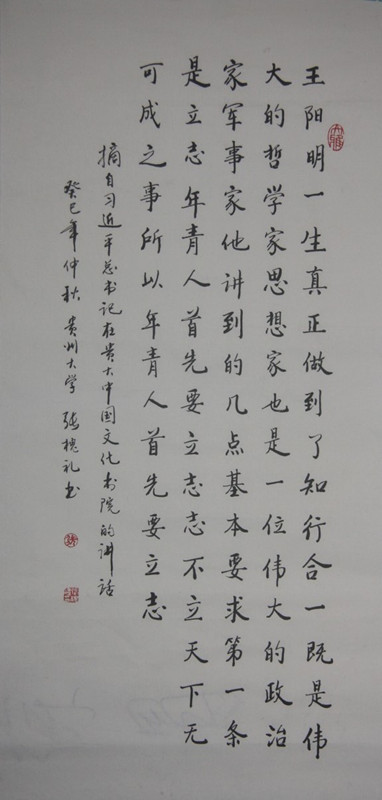 王阳明一生真正做到了知行合一既是伟
大的哲学家思想家也是一位伟大的政治
家军事家他讲到的几点基本要求第一条
是立志年青人首先要立志志不立天下无
可成之事所以年青人首先要立志
摘自习近平总书记在贵大中国文化书院的讲话
癸巳年仲秋贵州大学张槐礼书